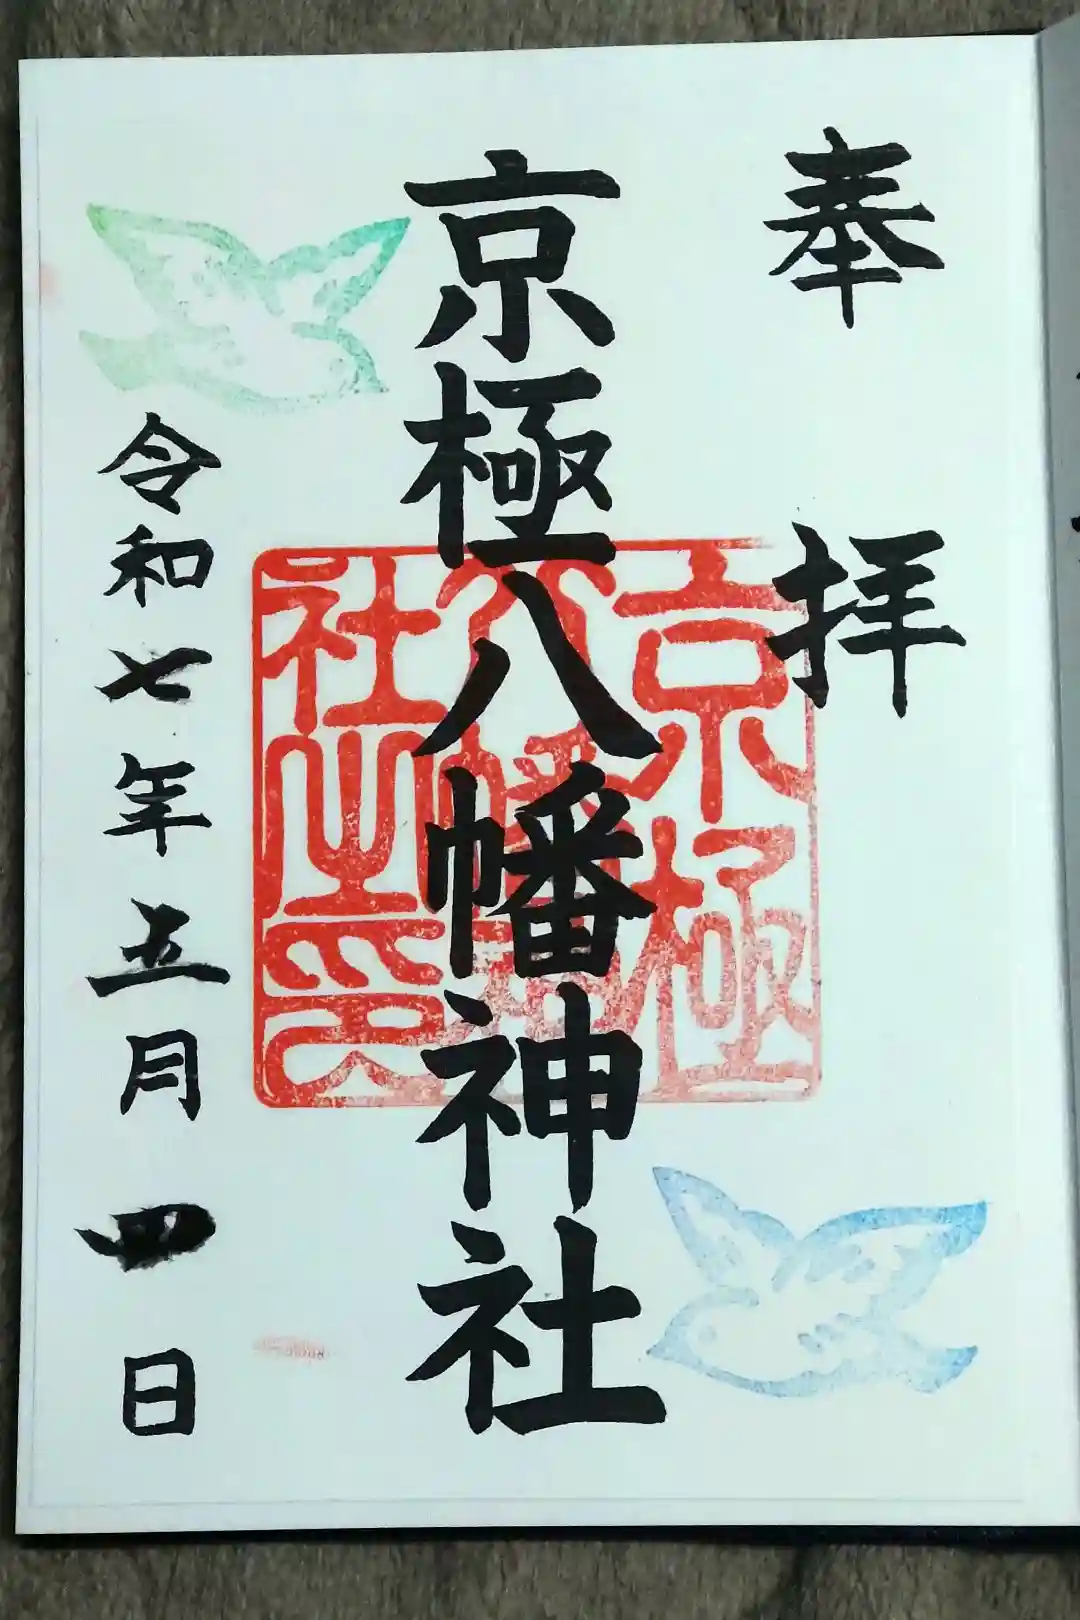 奉拝
京極八幡神社
京極八幡神社之印
令和七年五月四日